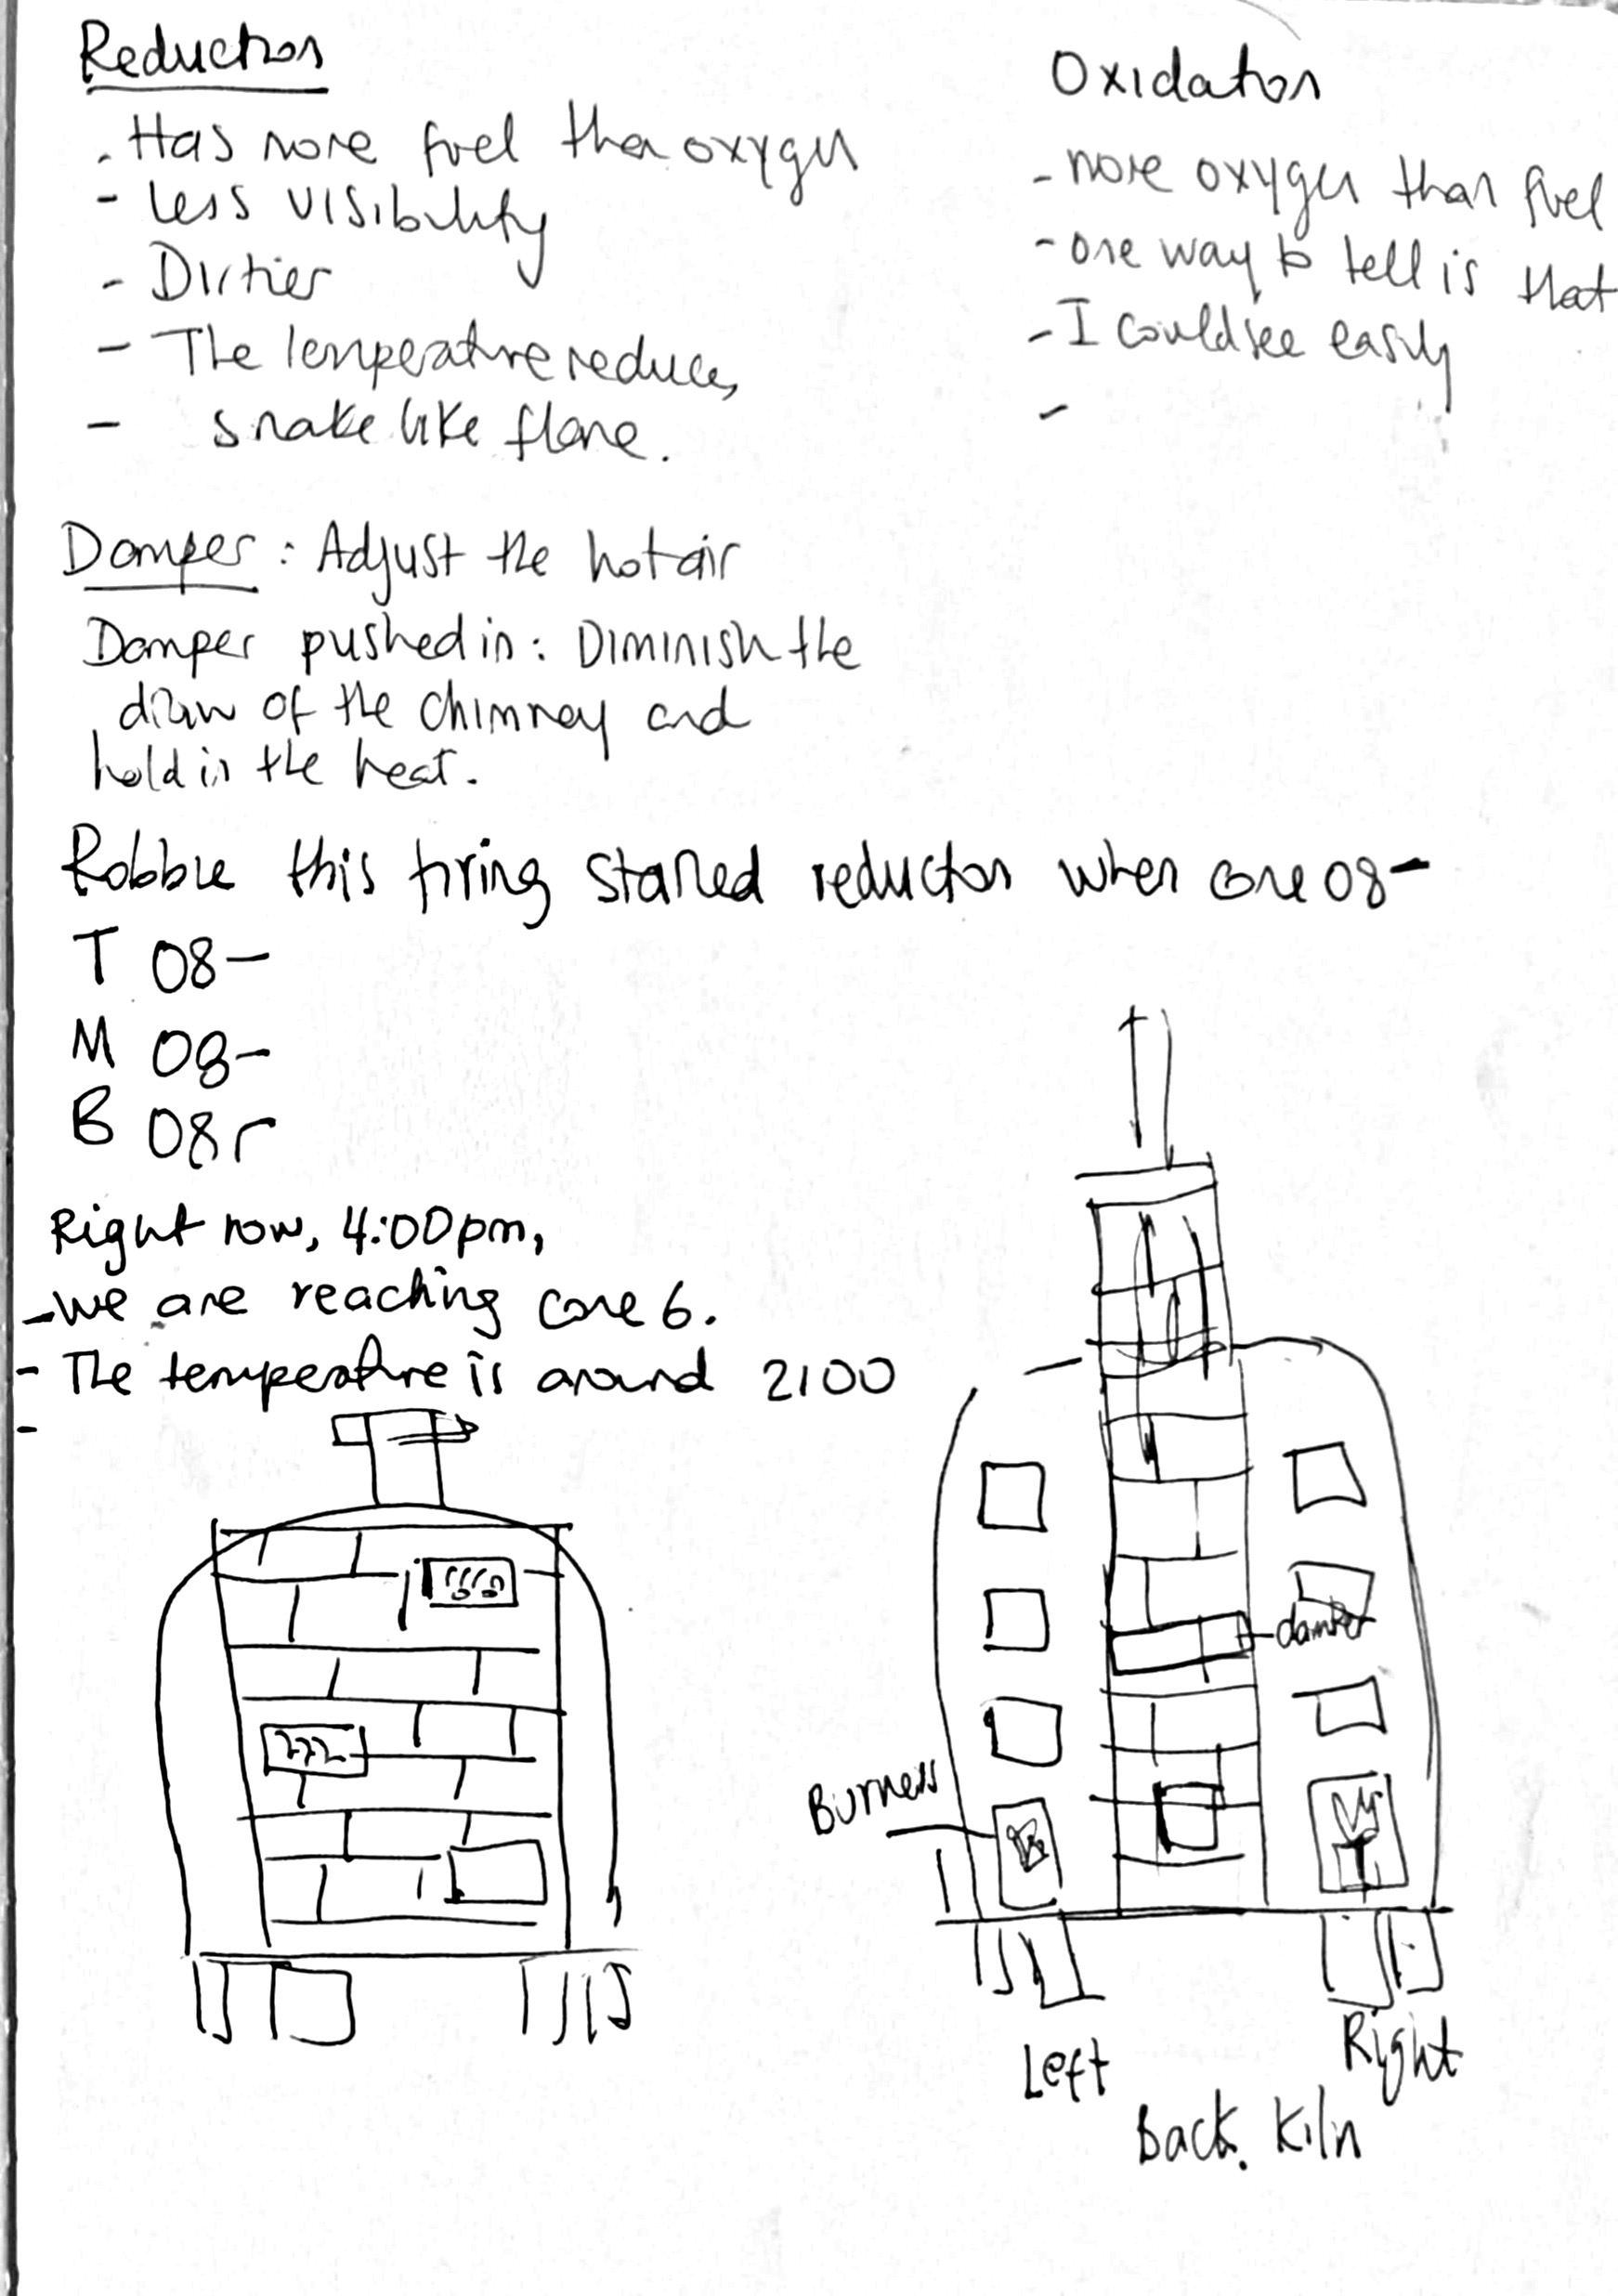 Reduction
- Has more fuel than oxygen
- Less visibility
- Dirtier
- The temperature reduces
- snake like flame.
Oxidation
- more oxygen than fuel
- one way to tell is that
- I could see easily
-
Damper : Adjust the hot air
Damper pushed in : Diminish the
draw of the chimney and
hold in the heat.
Robbie this firing started reduction when cone 08-
T 08-
M 08-
B 08
Right now, 4:00pm,
- we are reaching cone 6.
- The temperature is around 2100
-
damper
Burners
Left
Right
Back. Kiln